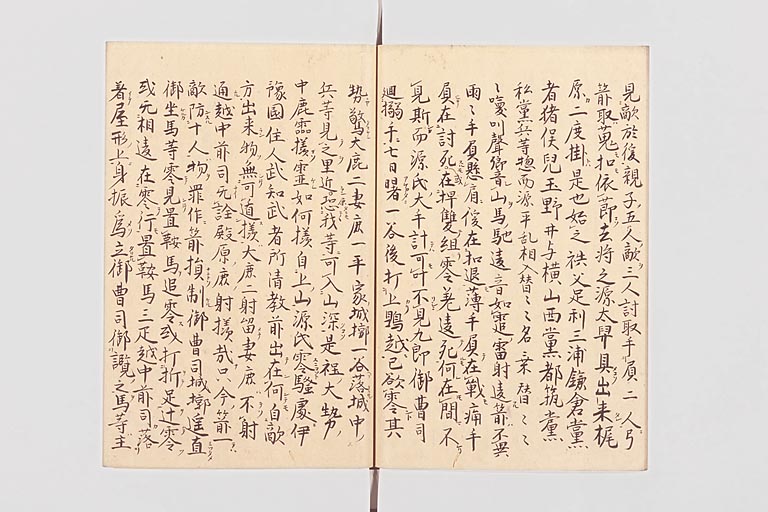 見敵於後親子五人敵三人討取手負二人弓
箭取莵扣依莭去将之源太昇具出来梶
原二度掛是也始之秩父足利三浦鎌倉黨
者猪俣兒玉野井与横山西黨都筑黨
私黨兵等惣而源平乱相入替ミ之名乗替ミミ
ミ喚叫聲響山馬馳遠音如雷射遠箭不異
雨ミ手負懸肩傍在扣退薄手負在戦痛手
負在討死在押雙組零差遠死何在間不
見斯而源氏大手計可叶不見九郎御曹司
廻搦手七日曙一谷後打上鵯越已欲零其
勢驚大鹿一妻鹿一平家城墎一谷落城中
兵等見之里近恐我等可入山深是程大勢
中鹿零様霊如何様自上山源氏零騒處伊
豫國住人武知武者所清教前出在何自敵
方出来物無可遁様大鹿二射留妻鹿不射
通越中前司无詮殿原鹿射様哉只今箭一
敵防十人物罪作箭損制御曹司城墎遙直
御坐馬等零見置鞍馬追零或打折足辷零
或无相違在零行置鞍馬三疋越中前司落
着屋形上身振為立御曹司御覧之馬等主